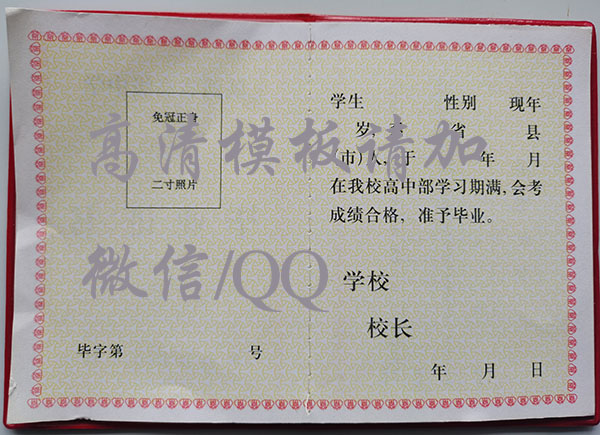 免冠正身
二寸照片
毕字第 号
学生 性别 现年
岁, 省 县
(市)人,于 年 月
在我校高中部学习期满,会考
成绩合格,准予毕业。
学校
校长
年 月 日
高清模板请加
微信/QQ